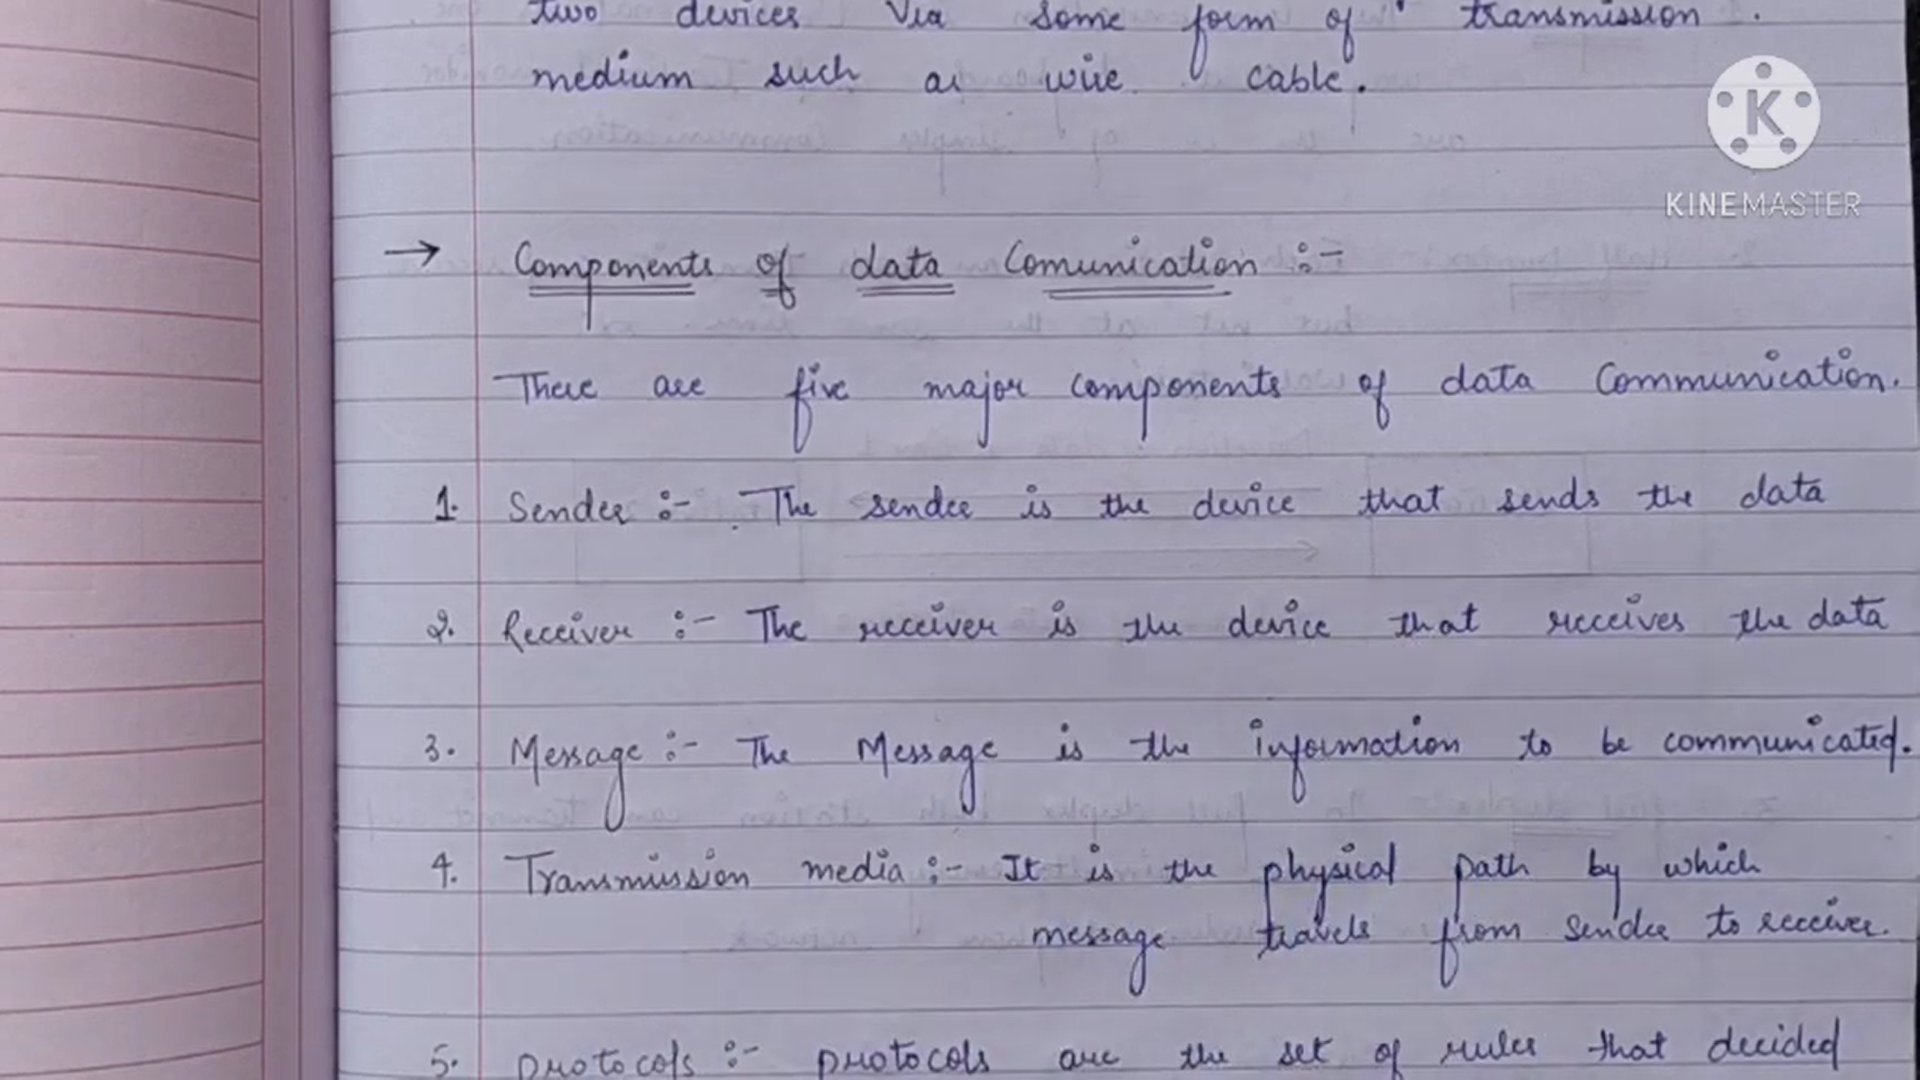 two devices Via some form of transmission
medium such as wire cable.
K
KINEMASTER
→ Components of data Comunication :-
There are five major components of data Communication.
1. Sender :- The sender is the device that sends the data
2. Receiver :- The receiver is the device that receives the data
3. Message :- The Message is the information to be communicated.
4. Transmission media :- It is the physical path by which
message travels from sender to receiver.
5. protocols :- protocols are the set of rules that decided